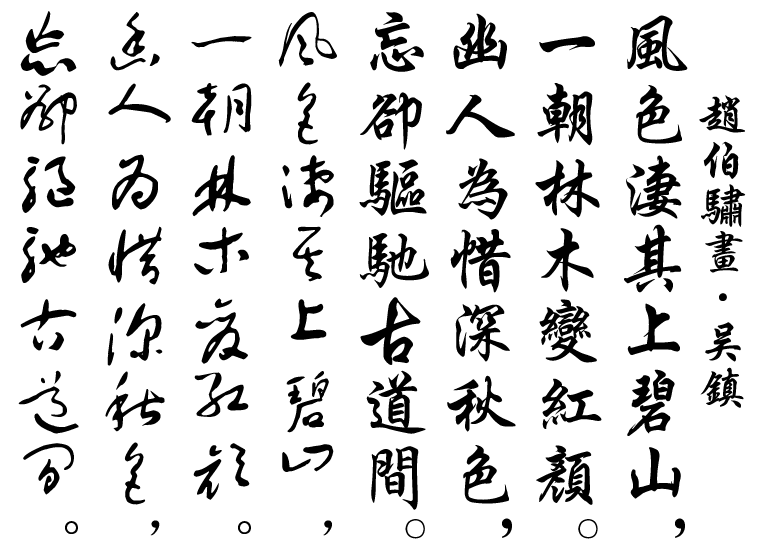 趙伯驌畫·吳鎮
風色淒其上碧山，
一朝林木變紅顏。
幽人為惜深秋色，
忘卻驅馳古道間。
風色淒其上碧山，
一朝林木變紅顏。
幽人為惜深秋色，
忘卻驅馳古道間。